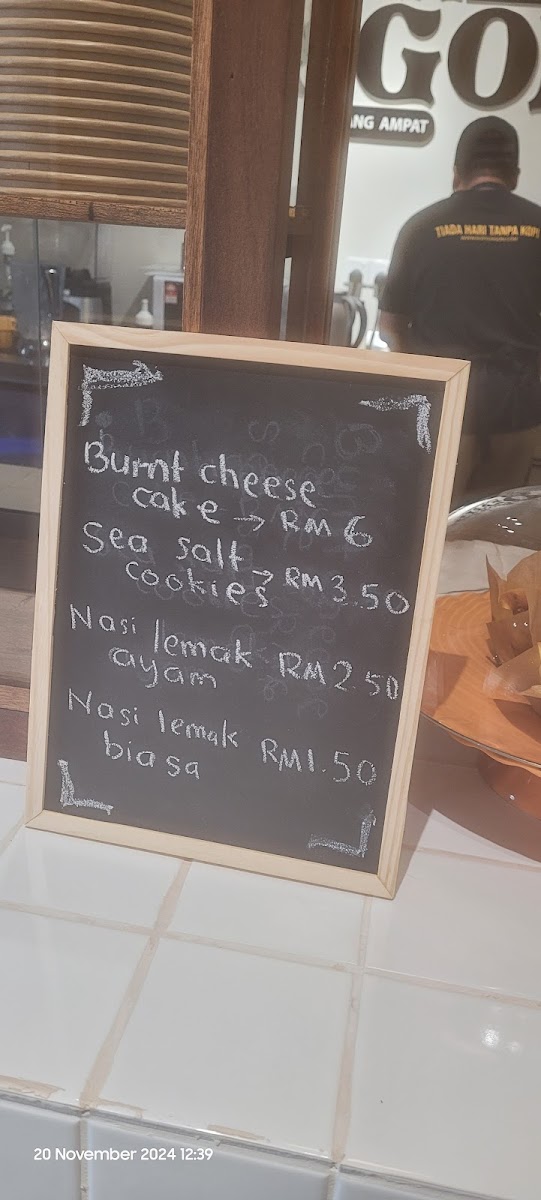 GO
ANG AMPAT
TIADA HARI TANPA KOPI
Burnt cheese
cake → RM 6
Sea salt
cookies → RM 3.50
Nasi lemak
ayam RM 2.50
Nasi lemak
biasa RM1.50
20 November 2024 12:39